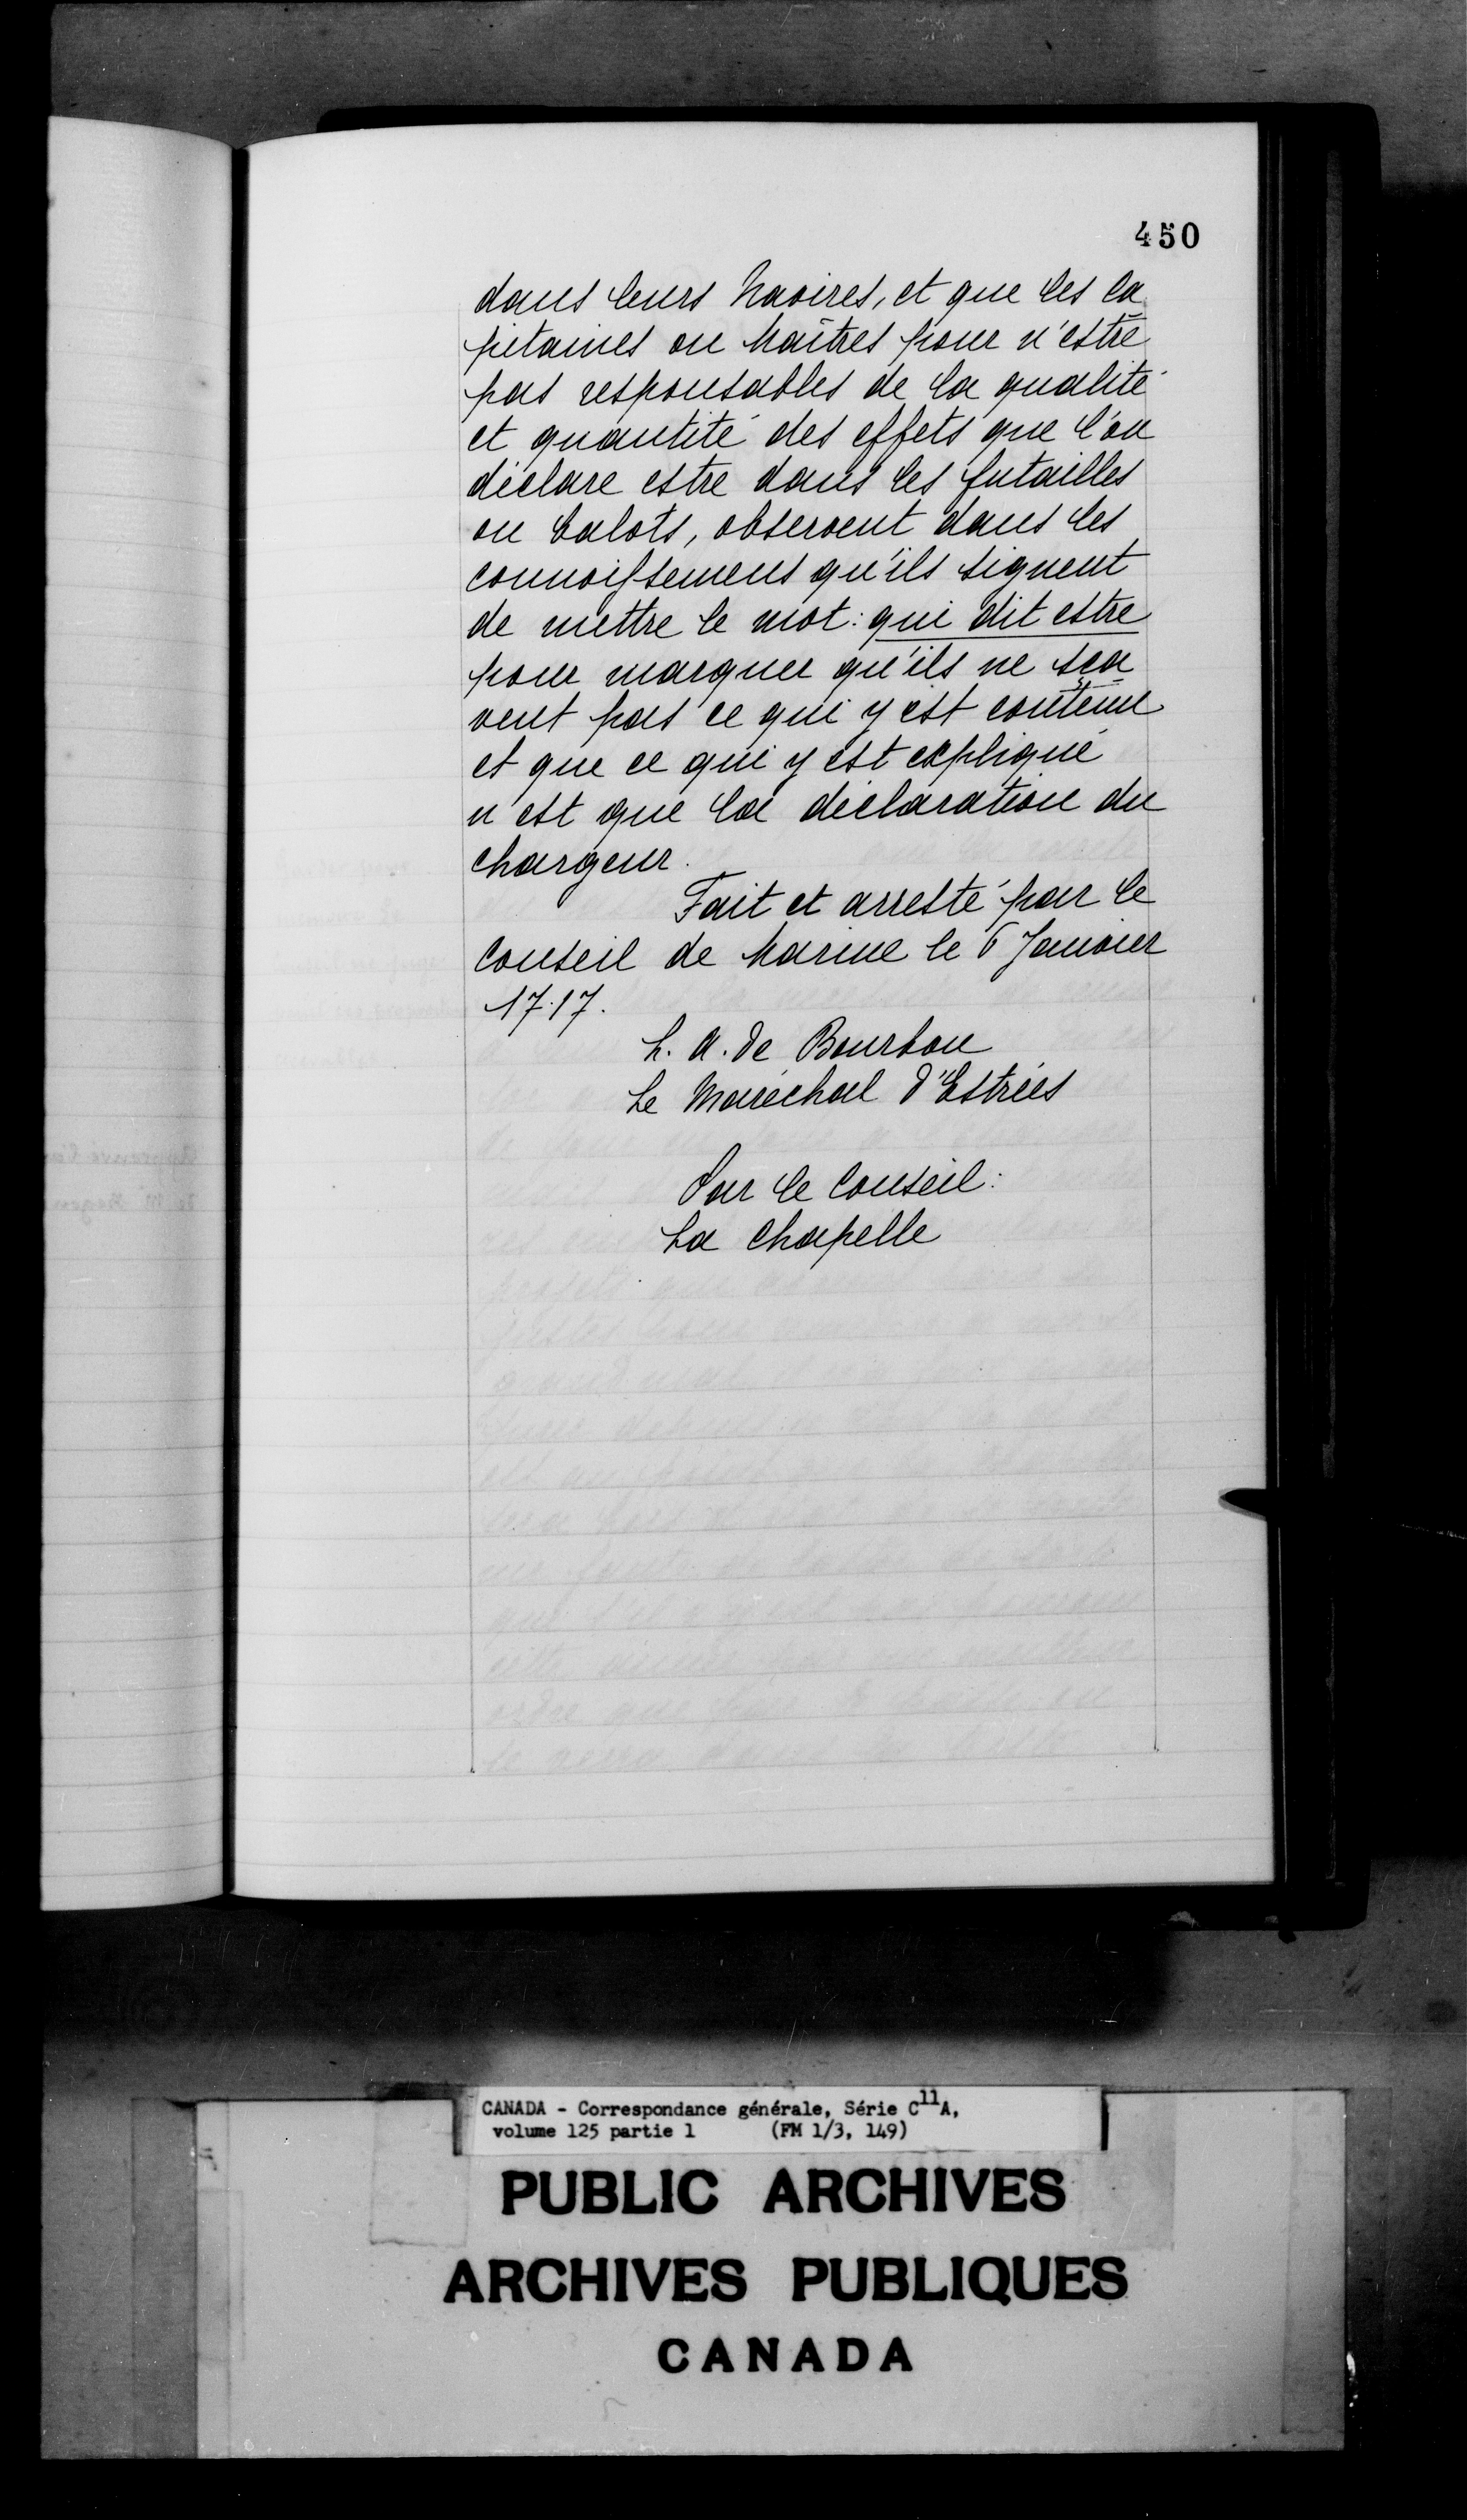 450
dans leurs Navires, et que les Ca-
pitaines ou Maîtres pour n'estre
pas responsables de la qualité
et quantité des effets que l'on
déclare estre dans les futailles
ou balots, observent dans les
connoissemens qu'ils signent
de mettre le mot: qui dit estre
pour marquer qu'ils ne sça-
vent pas ce qui y est contenu
et que ce qui y est expliqué
n'est que la déclaration du
chargeur.
Fait et arresté par le
Conseil de Marine le 6 Janvier
1717.
L. A. de Bourbon
Le Maréchal d'Estrées
Par le Conseil:
La Chapelle
CANADA - Correspondance générale, Série C11A,
volume 125 partie 1 (FM 1/3, 149)
PUBLIC ARCHIVES
ARCHIVES PUBLIQUES
CANADA